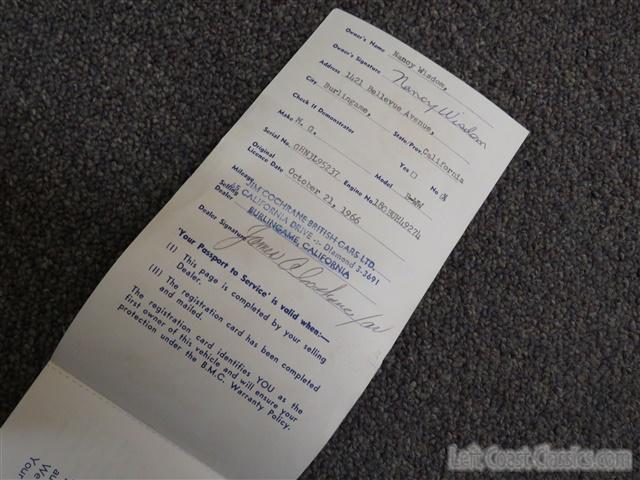 Owner's Name Nancy Wisdom,
Owner's Signature Nancy Wisdom
Address 1421 Bellevue Avenue,
City Burlingame, State/Prov. California
Check if Demonstrator Yes No
Make M. G. Model
Serial No. GHN3L95237 Engine No. 18GBUH49274
Original
Licence Date October 21, 1966
Mileage
Selling
Dealer
JIM COCHRANE BRITISH CARS LTD.
CALIFORNIA DRIVE -:- Diamond 3-3691
BURLINGAME, CALIFORNIA
Dealer Signature
'Your Passport to Service' is valid when:—
(I) This page is completed by your selling
Dealer.
(II) The registration card has been completed
and mailed.
The registration card identifies YOU as the
first owner of this vehicle and will ensure your
protection under the B.M.C. Warranty Policy.
au
We
Your
Left Coast Classics.com